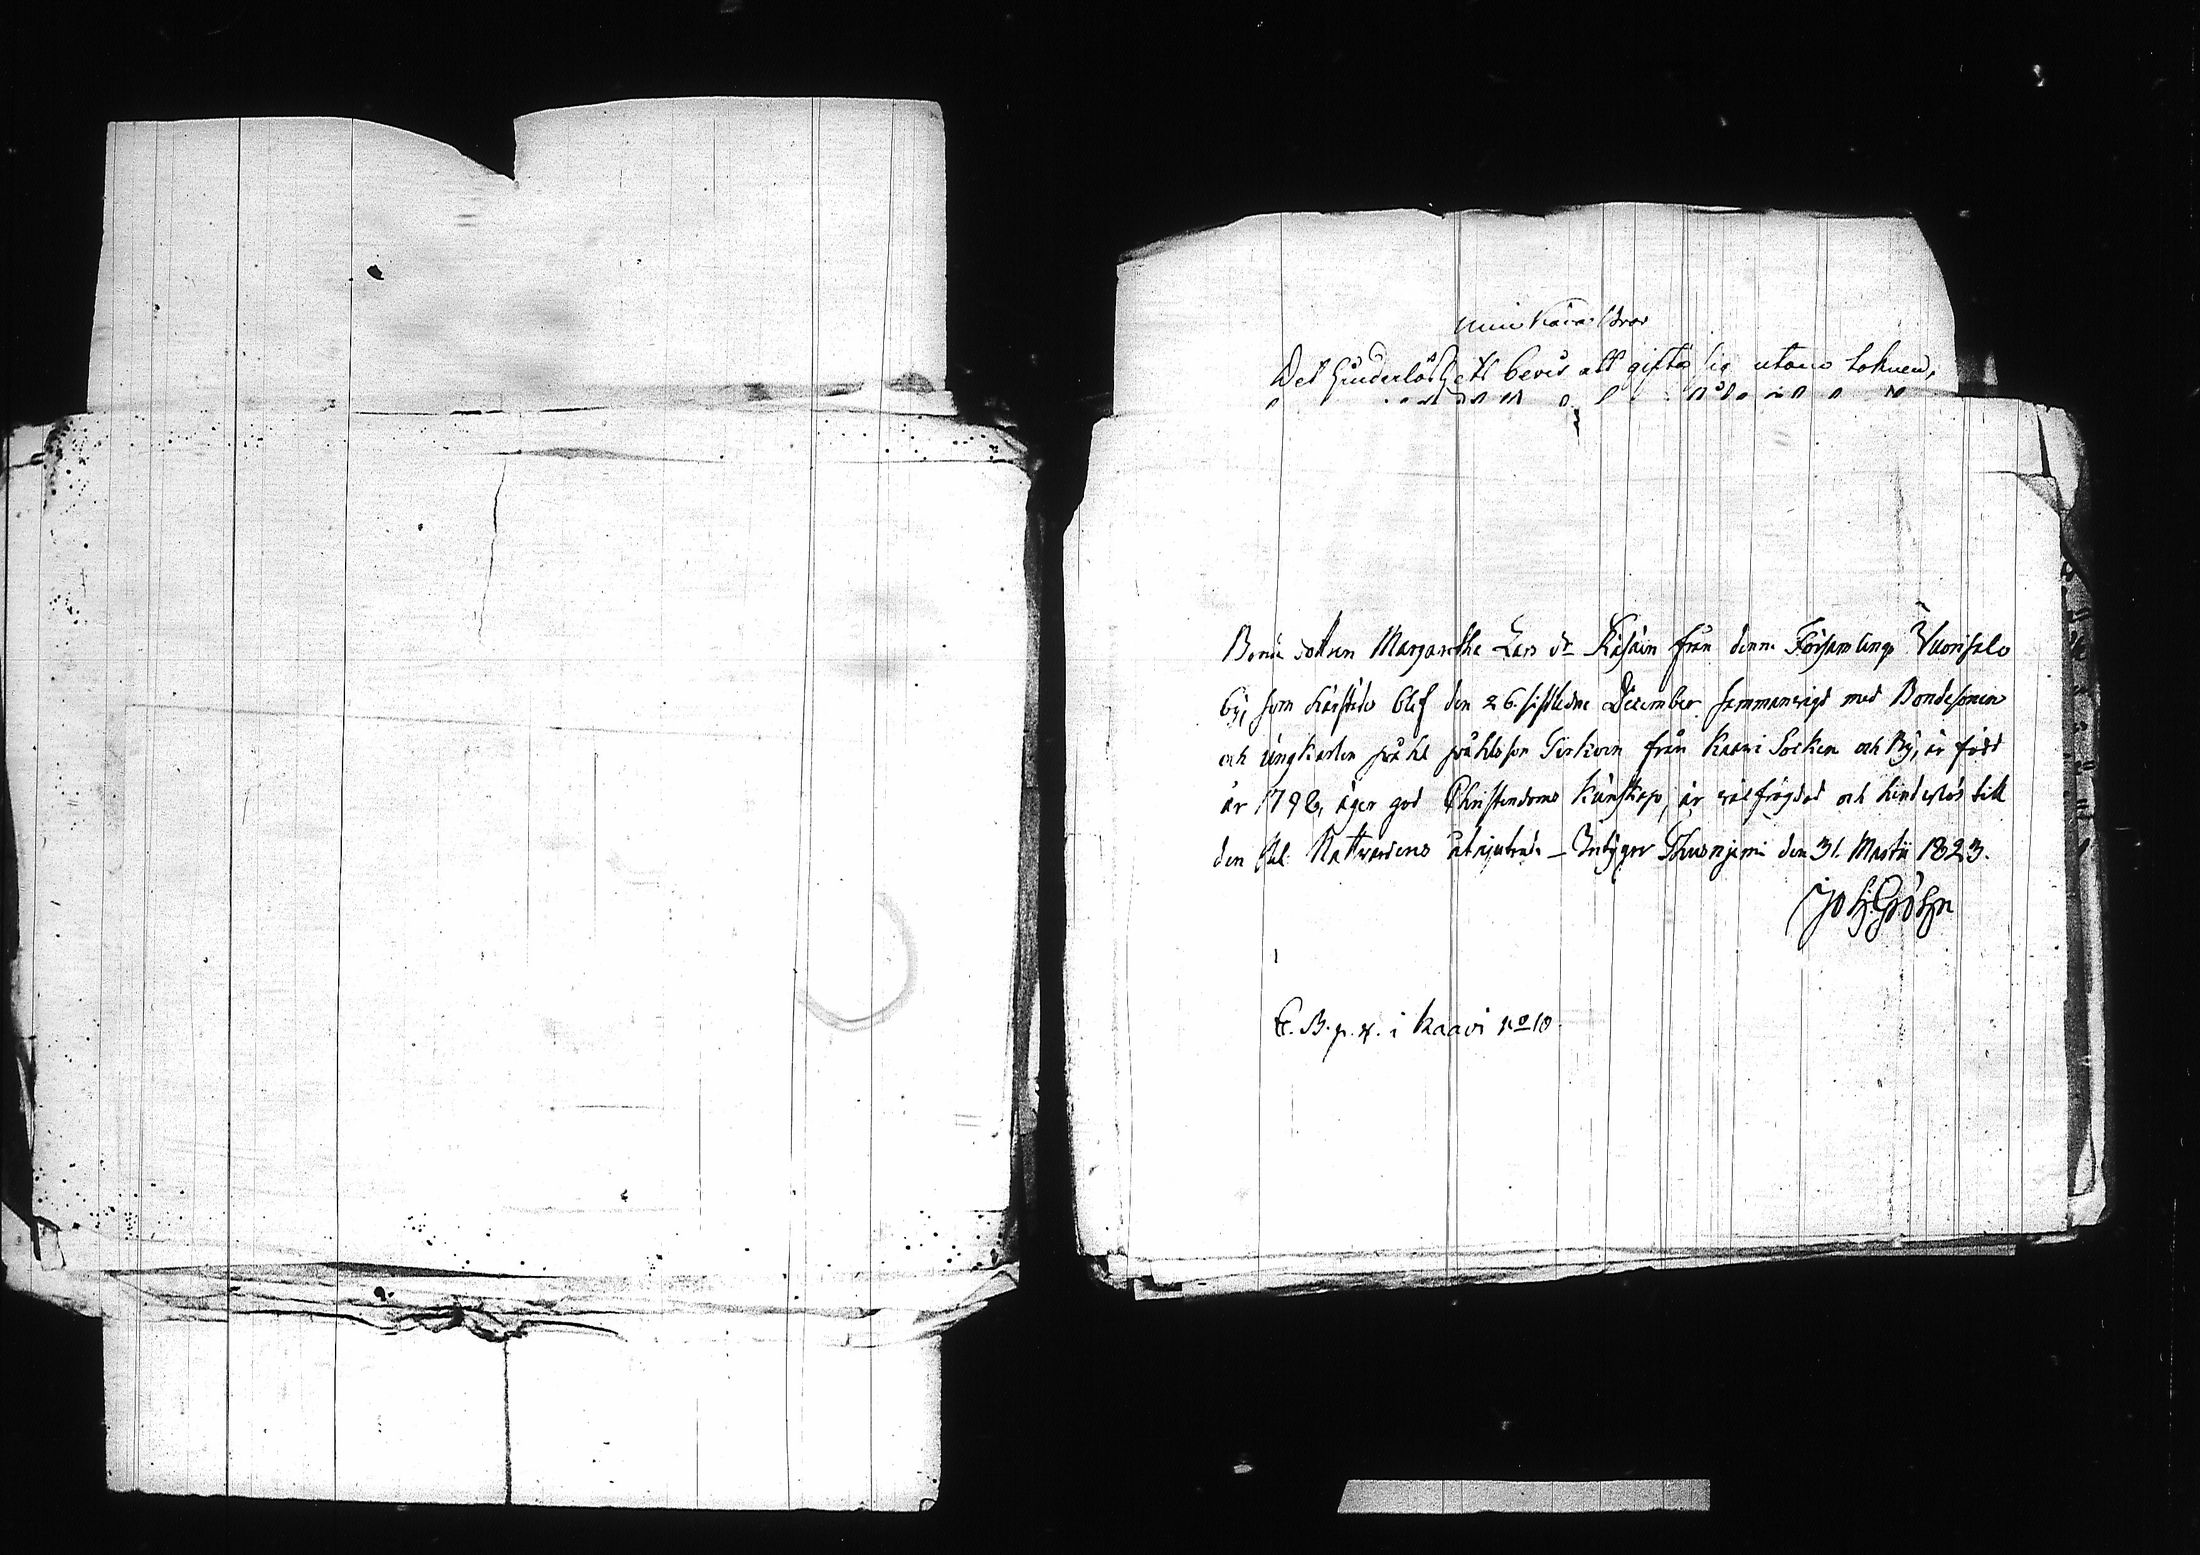 Min Kära Bror
Det hinderlöshets bevis att gifta sig utom Soknen,
Bonde dottren Margaretha Lars dr Räsäin från denne Församlings Vuorisalo
by, som härstedes blef den 26. sistledne December sammanvigd med Bondesonen
och ungkarlen påhl påhlsson Tirkoin från Kaavi Socken och By, är född
år 1796, äger god Christendoms kunskap, är välfrägdad och hinderlös till
den Hel. Nattvardens åtnjutande – Intygar Thusnjemi den 31. Martii 1823.
Joh Gröhn
C. B. p. 4. i Kaavi No 10